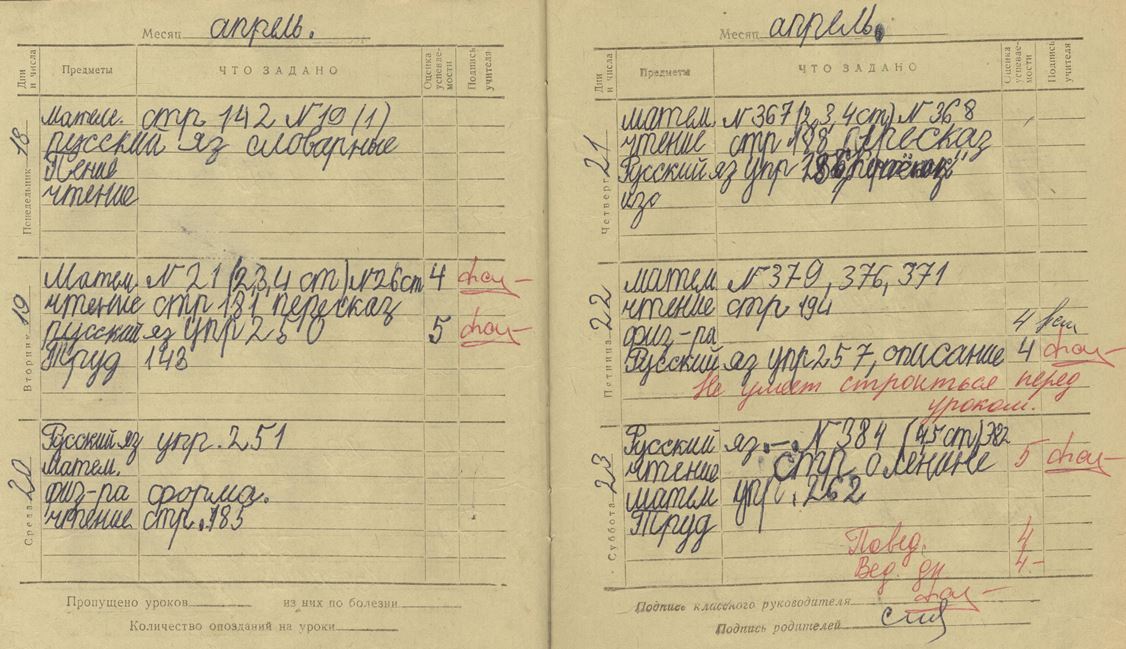 Месяц апрель.
Дни и числа Предметы ЧТО ЗАДАНО Оценка успеваемости Подпись учителя
Понедельник 18
Матем. стр 142 N 19 (1)
русский яз словарные
Пение
чтение
Вторник 19
Матем. N 21 (2,3,4 ст) N 26 ст 4
чтение стр 181 пересказ
русский яз упр 250 5
Труд 143
Среда 20
Русский яз упр. 251
матем.
физ-ра форма.
чтение стр. 185
Пропущено уроков из них по болезни
Количество опозданий на уроки
Месяц апрель.
Дни и числа Предметы ЧТО ЗАДАНО Оценка успеваемости Подпись учителя
Четверг 21
матем N 367 (2,3,4 ст) N 368
чтение стр 188 пересказ
Русский яз упр
изо
Пятница 22
матем N 379, 376, 371
чтение стр 194
физ-ра 4
Русский яз упр 257, списание 4
Не умеет строиться перед
уроком.
Суббота 23
Русский яз. — . N 384 (4,5 ст) 382
чтение стр о Ленине 5
матем упр. 262
Труд
Повед. 4
Вед. дн 4-
Подпись классного руководителя
Подпись родителей